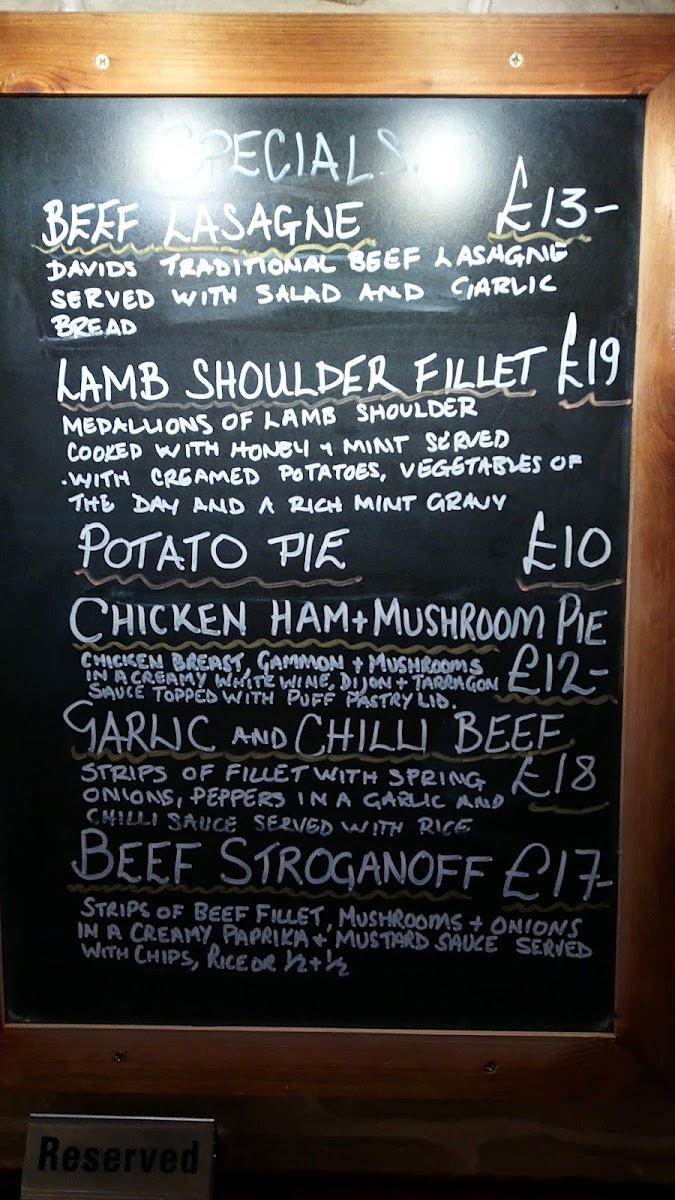 SPECIALS
BEEF LASAGNE £13-
DAVIDS TRADITIONAL BEEF LASAGNE
SERVED WITH SALAD AND GARLIC
BREAD
LAMB SHOULDER FILLET £19
MEDALLIONS OF LAMB SHOULDER
COOKED WITH HONEY + MINT SERVED
WITH CREAMED POTATOES, VEGETABLES OF
THE DAY AND A RICH MINT GRAVY
POTATO PIE £10
CHICKEN HAM + MUSHROOM PIE
CHICKEN BREAST, GAMMON + MUSHROOMS
IN A CREAMY WHITE WINE, DIJON + TARRAGON £12-
SAUCE TOPPED WITH PUFF PASTRY LID.
GARLIC AND CHILLI BEEF
STRIPS OF FILLET WITH SPRING £18
ONIONS, PEPPERS IN A GARLIC AND
CHILLI SAUCE SERVED WITH RICE
BEEF STROGANOFF £17-
STRIPS OF BEEF FILLET, MUSHROOMS + ONIONS
IN A CREAMY PAPRIKA + MUSTARD SAUCE SERVED
WITH CHIPS, RICE OR ½ + ½
Reserved